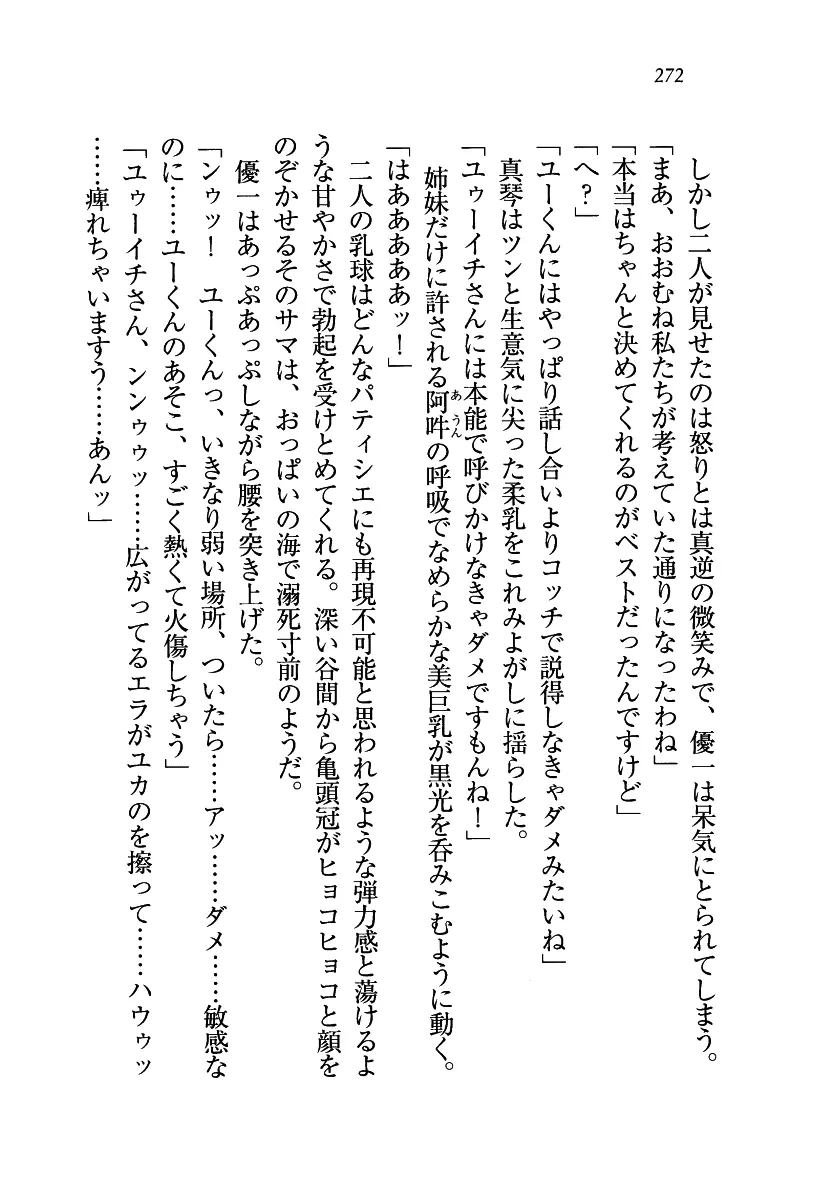 272
しかし二人が見せたのは怒りとは真逆の微笑みで、優一は呆気にとられてしまう。
「まあ、おおむね私たちが考えていた通りになったわね」
「本当はちゃんと決めてくれるのがベストだったんですけど」
「へ？」
「ユーくんにはやっぱり話し合いよりコッチで説得しなきゃダメみたいね」
真琴はツンと生意気に尖った柔乳をこれみよがしに揺らした。
「ユゥーイチさんには本能で呼びかけなきゃダメですもんね！」
姉妹だけに許される阿吽の呼吸でなめらかな美巨乳が黒光を呑みこむように動く。
あ うん
「はああああァッ！」
二人の乳球はどんなパティシエにも再現不可能と思われるような弾力感と蕩けるよ
うな甘やかさで勃起を受けとめてくれる。深い谷間から亀頭冠がヒョコヒョコと顔を
のぞかせるそのサマは、おっぱいの海で溺死寸前のようだ。
優一はあっぷあっぷしながら腰を突き上げた。
「ンゥッ！　ユーくんっ、いきなり弱い場所、ついたら……アッ……ダメ……敏感な
のに……ユーくんのあそこ、すごく熱くて火傷しちゃう」
「ユゥーイチさん、ンンゥゥッ……広がってるエラがユカのを擦って……ハウゥッ
……痺れちゃいますう……あんッ」